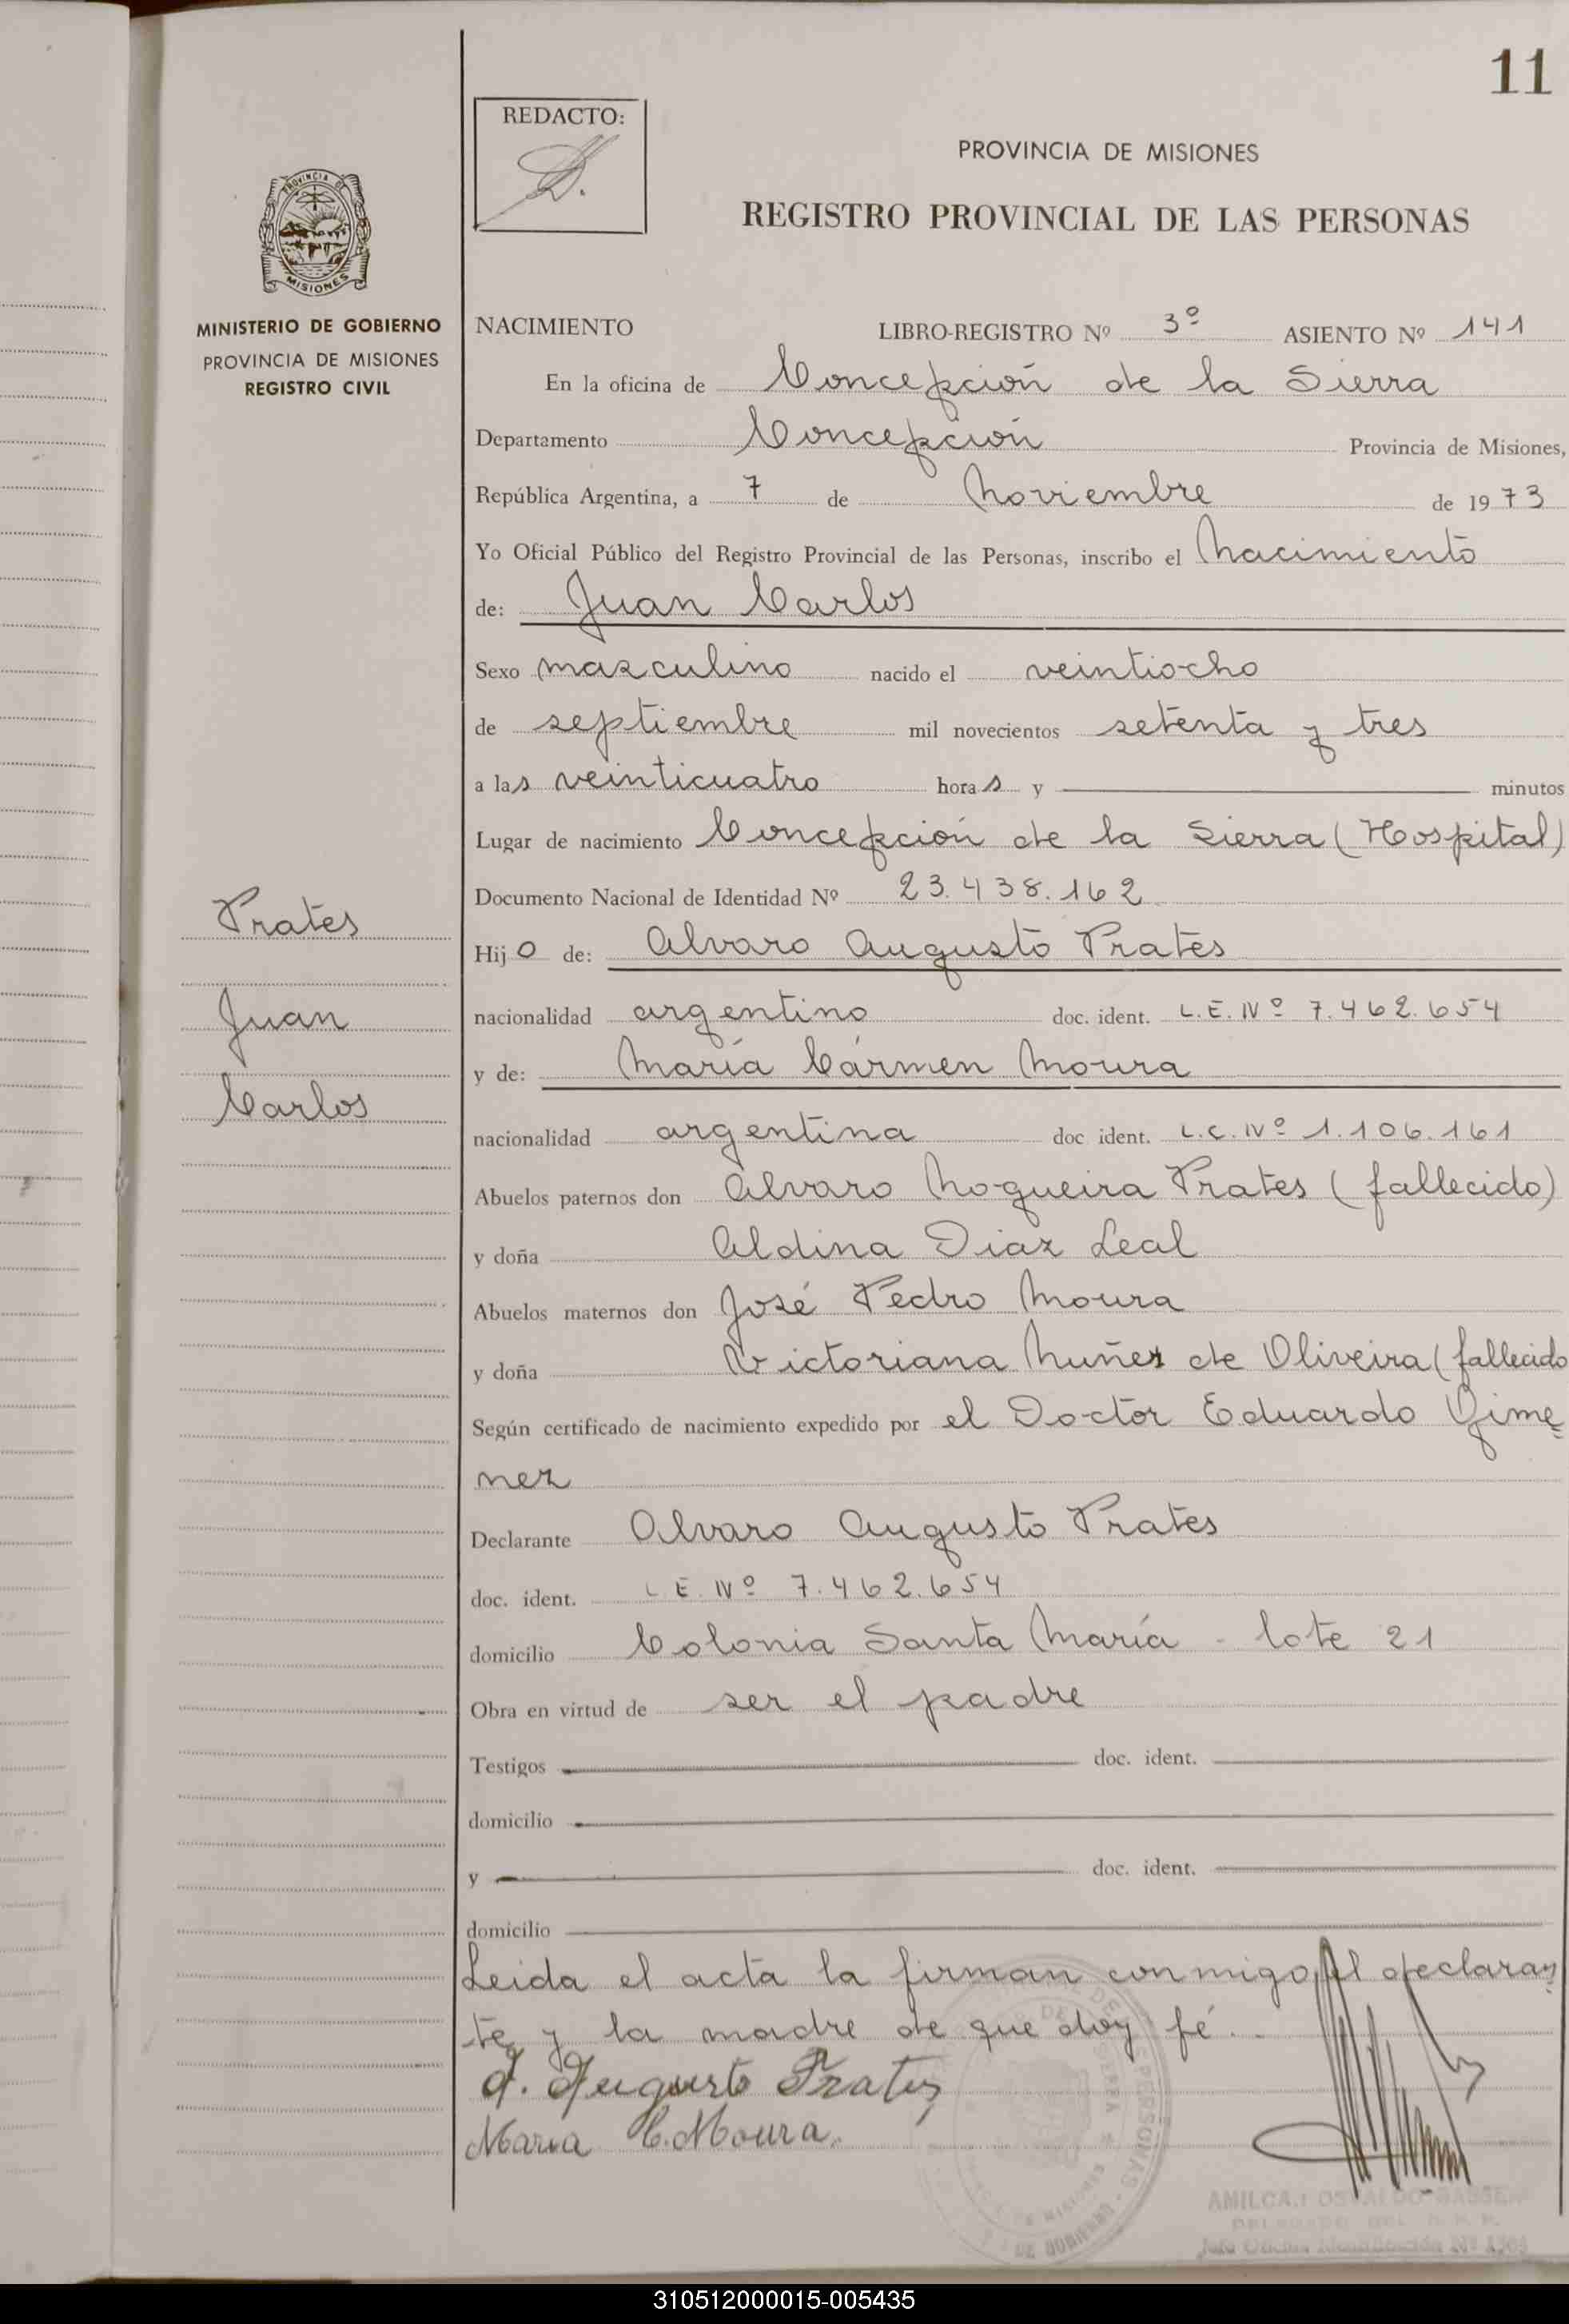 11
REDACTO:
PROVINCIA DE MISIONES
REGISTRO PROVINCIAL DE LAS PERSONAS
PROVINCIA DE
MISIONES
MINISTERIO DE GOBIERNO
PROVINCIA DE MISIONES
REGISTRO CIVIL
NACIMIENTO LIBRO-REGISTRO Nº 3º ASIENTO Nº 141
En la oficina de Concepción de la Sierra
Departamento Concepción Provincia de Misiones,
República Argentina, a 7 de Noviembre de 1973
Yo Oficial Público del Registro Provincial de las Personas, inscribo el Nacimiento
de: Juan Carlos
Sexo masculino nacido el veintiocho
de septiembre mil novecientos setenta y tres
a las veinticuatro horas y minutos
Lugar de nacimiento Concepción de la Sierra (Hospital)
Documento Nacional de Identidad Nº 23.438.162
Prates
Juan
Carlos
Hijo de: Alvaro Augusto Prates
nacionalidad argentino doc. ident. L.E. Nº 7.462.654
y de: María Cármen Moura
nacionalidad argentina doc ident. L.C. Nº 1.106.161
Abuelos paternos don Alvaro Nogueira Prates (fallecido)
y doña Aldina Diaz Leal
Abuelos maternos don José Pedro Moura
y doña Victoriana Nuñez de Oliveira (fallecido
Según certificado de nacimiento expedido por el Doctor Eduardo Gime
nez
Declarante Alvaro Augusto Prates
doc. ident. L E. Nº 7.462.654
domicilio Colonia Santa María - lote 21
Obra en virtud de ser el padre
Testigos doc. ident.
domicilio
y doc. ident.
domicilio
Leida el acta la firman conmigo, el declaran
te y la madre de que doy fé.
A. Augusto Prates
Maria C. Moura.
310512000015-005435